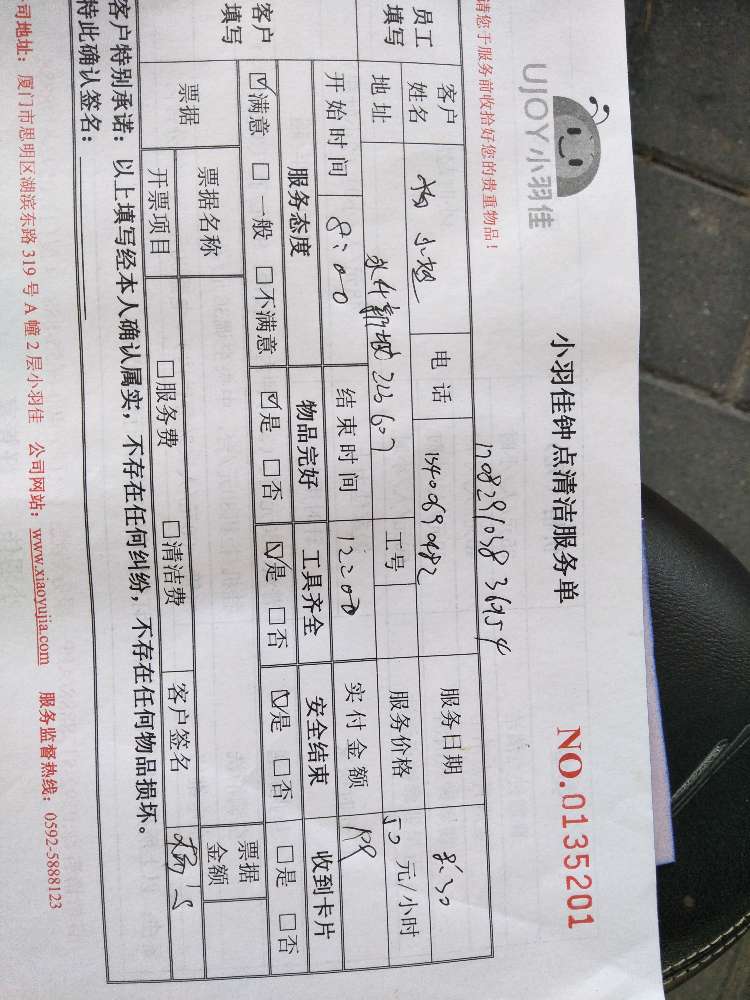 UJOY小羽佳
小羽佳钟点清洁服务单
NO.0135201
请您于服务前收拾好您的贵重物品!
员工填写
客户姓名 电话 服务日期 8:30
地址 工号 服务价格 50 元/小时
开始时间 8:00 结束时间 12:00 实付金额
客户填写
服务态度 物品完好 工具齐全 安全结束 收到卡片
☑满意 □一般 □不满意 ☑是 □否 ☑是 □否 ☑是 □否 □是 □否
票据 票据名称 票据金额
开票项目 □服务费 □清洁费 客户签名
客户特别承诺:以上填写经本人确认属实,不存在任何纠纷,不存在任何物品损坏。
特此确认签名:
司地址:厦门市思明区湖滨东路 319 号 A 幢 2 层小羽佳 公司网站:www.xiaoyujia.com 服务监督热线:0592-5888123